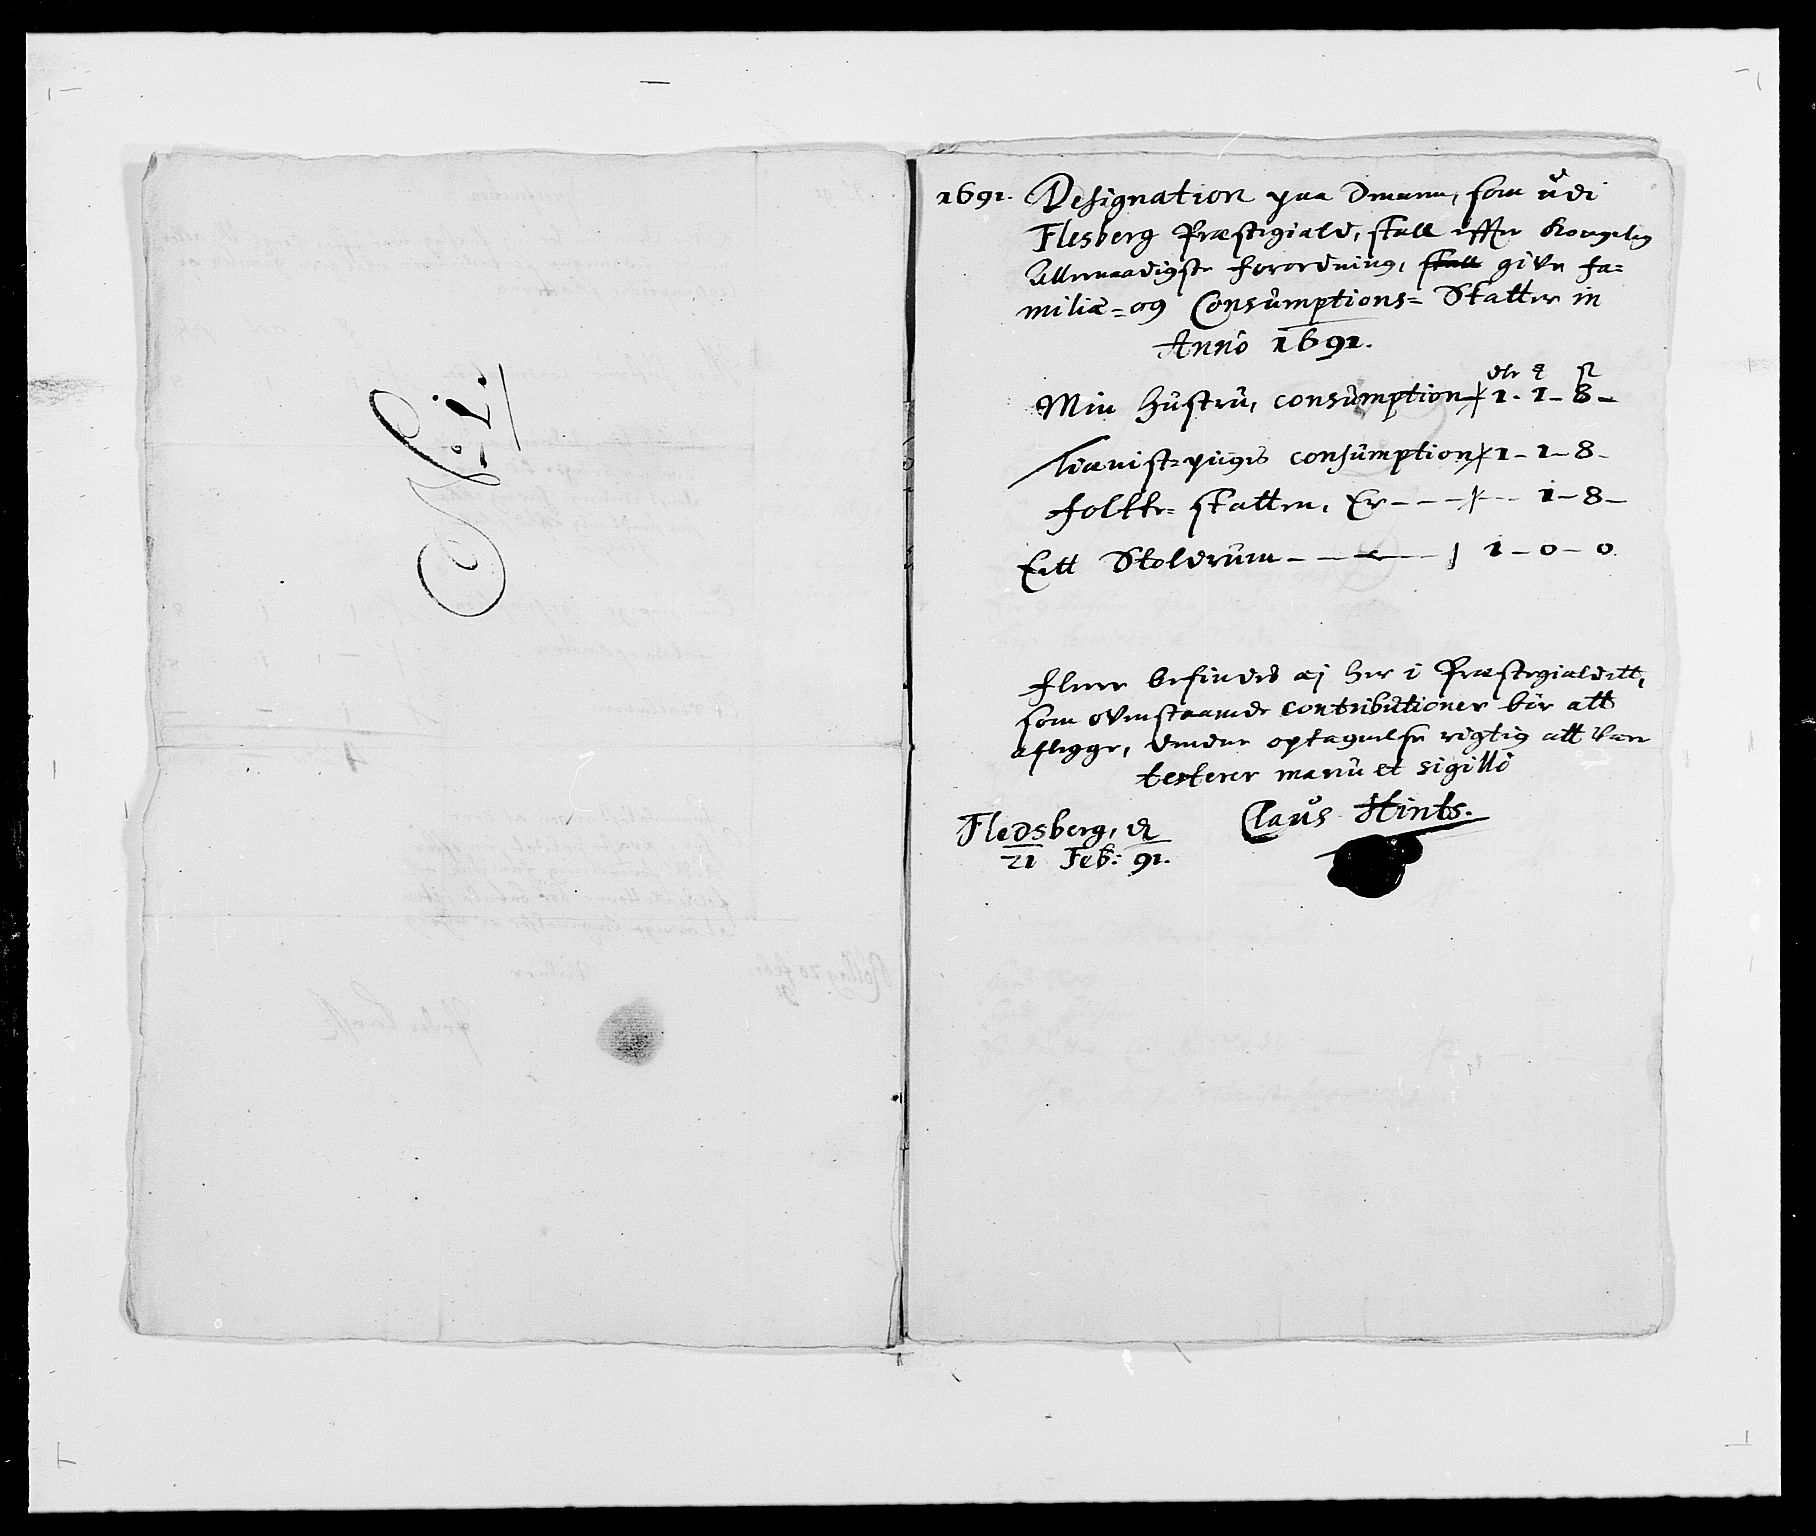 No: 1.
1691. Designation paa Dennem, som udi
Flesberg Præstegiald, skall effter Kongelig
Allernaadigste forordning, skall give fa=
miliæ= og Consumptions= Skatter in
Anno 1691.
dlr
Min Hustru, consumption 1. 1 - 8 -
Tienist=piiges consumption 1 - 1 - 8 -
folke= skatten, Er - - - - - - 1 - 8 -
Eett Stoldrum - - - - 1 - 0 - 0.
Flerre befindes ej her i Præstegialdett,
som ovenstaaende contributioner bør att
aflegge, denne optegnelse rigtig att være
testerer manu et sigillo
Claus Hints.
Fledsberg, d
21 Feb: 91.